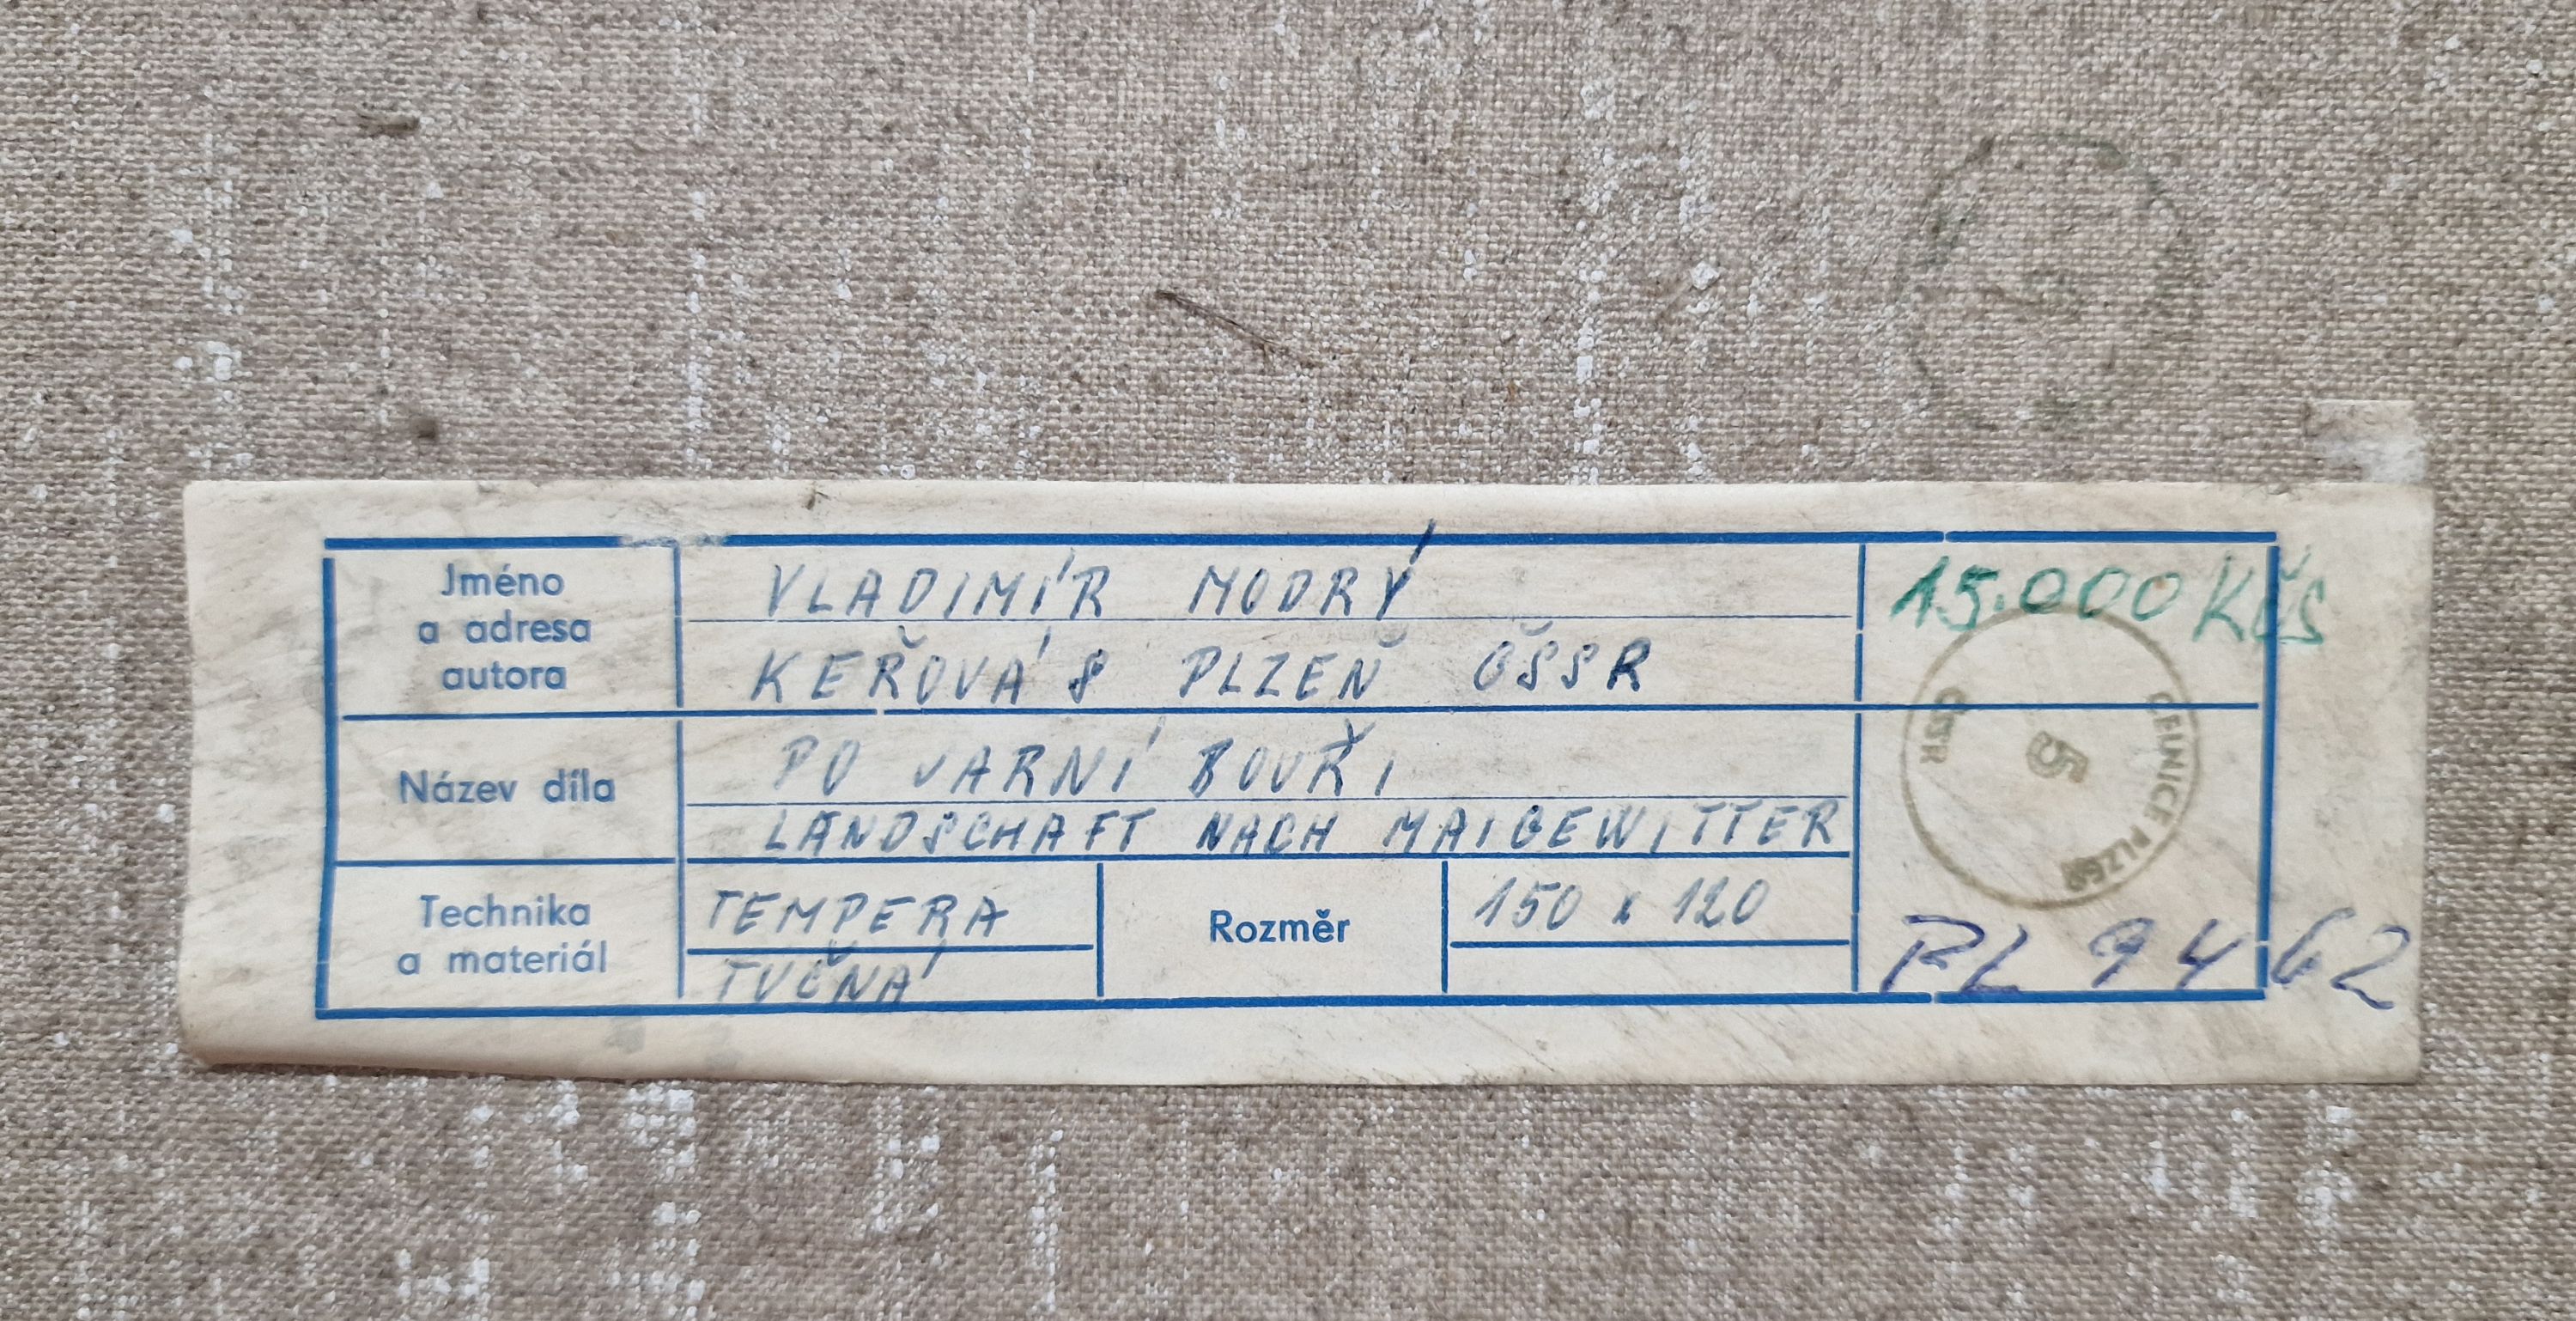 Jméno
a adresa
autora
VLADIMÍR MODRÝ
KEŘOVÁ 8 PLZEŇ ČSSR
15.000 Kčs
Název díla
PO JARNÍ BOUŘI
LANDSCHAFT NACH MAIGEWITTER
ČSSR
5
CELNICE PLZEŇ
Technika
a materiál
TEMPERA
TUČNÁ
Rozměr
150 x 120
PL 9462